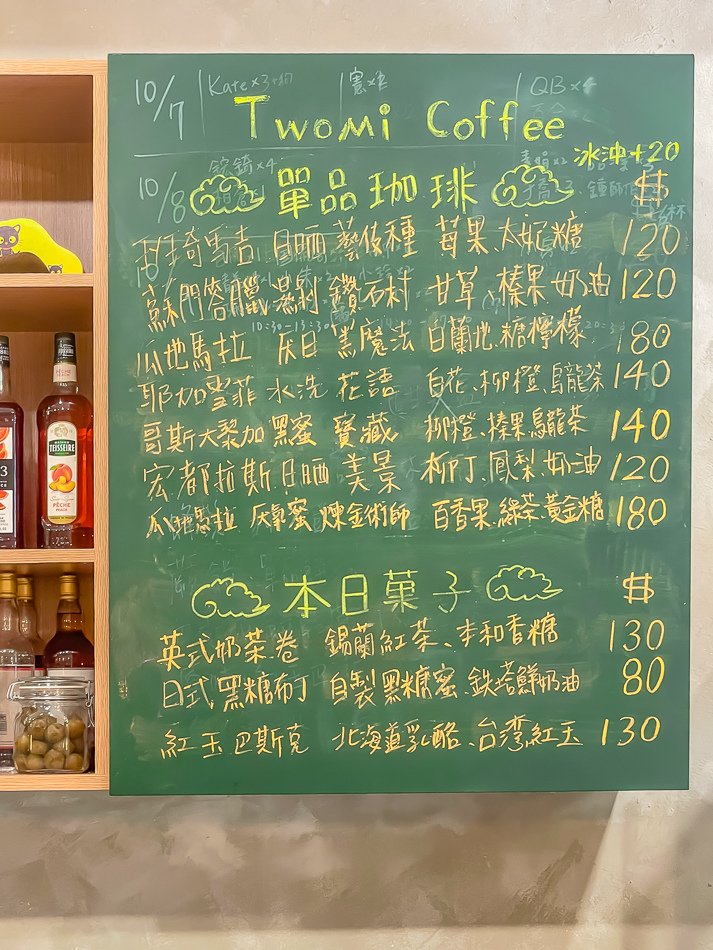 10/7 Kate×3 QB×4
Twomi Coffee
冰沖+20
10/8 單品珈琲 $
衣索馬吉 日晒 藝伎種 莓果、太妃糖 120
蘇門答臘 濕剝 鑽石村 甘草、榛果、奶油 120
瓜地馬拉 厌日 黑魔法 白蘭地、糖檸檬 180
耶加雪菲 水洗 花語 白花、柳橙、烏龍茶 140
哥斯大黎加 黑蜜 寶藏 柳橙、榛果、烏龍茶 140
宏都拉斯 日晒 美景 柳丁、鳳梨、奶油 120
瓜地馬拉 厌氧蜜 煉金術師 百香果、綠茶、黃金糖 180
本日菓子 $
英式奶茶卷 錫蘭紅茶、丰和香糖 130
日式黑糖布丁 自製黑糖蜜、鉄塔鮮奶油 80
紅玉巴斯克 北海道乳酪、台湾紅玉 130
TEISSEIRE
PÊCHE